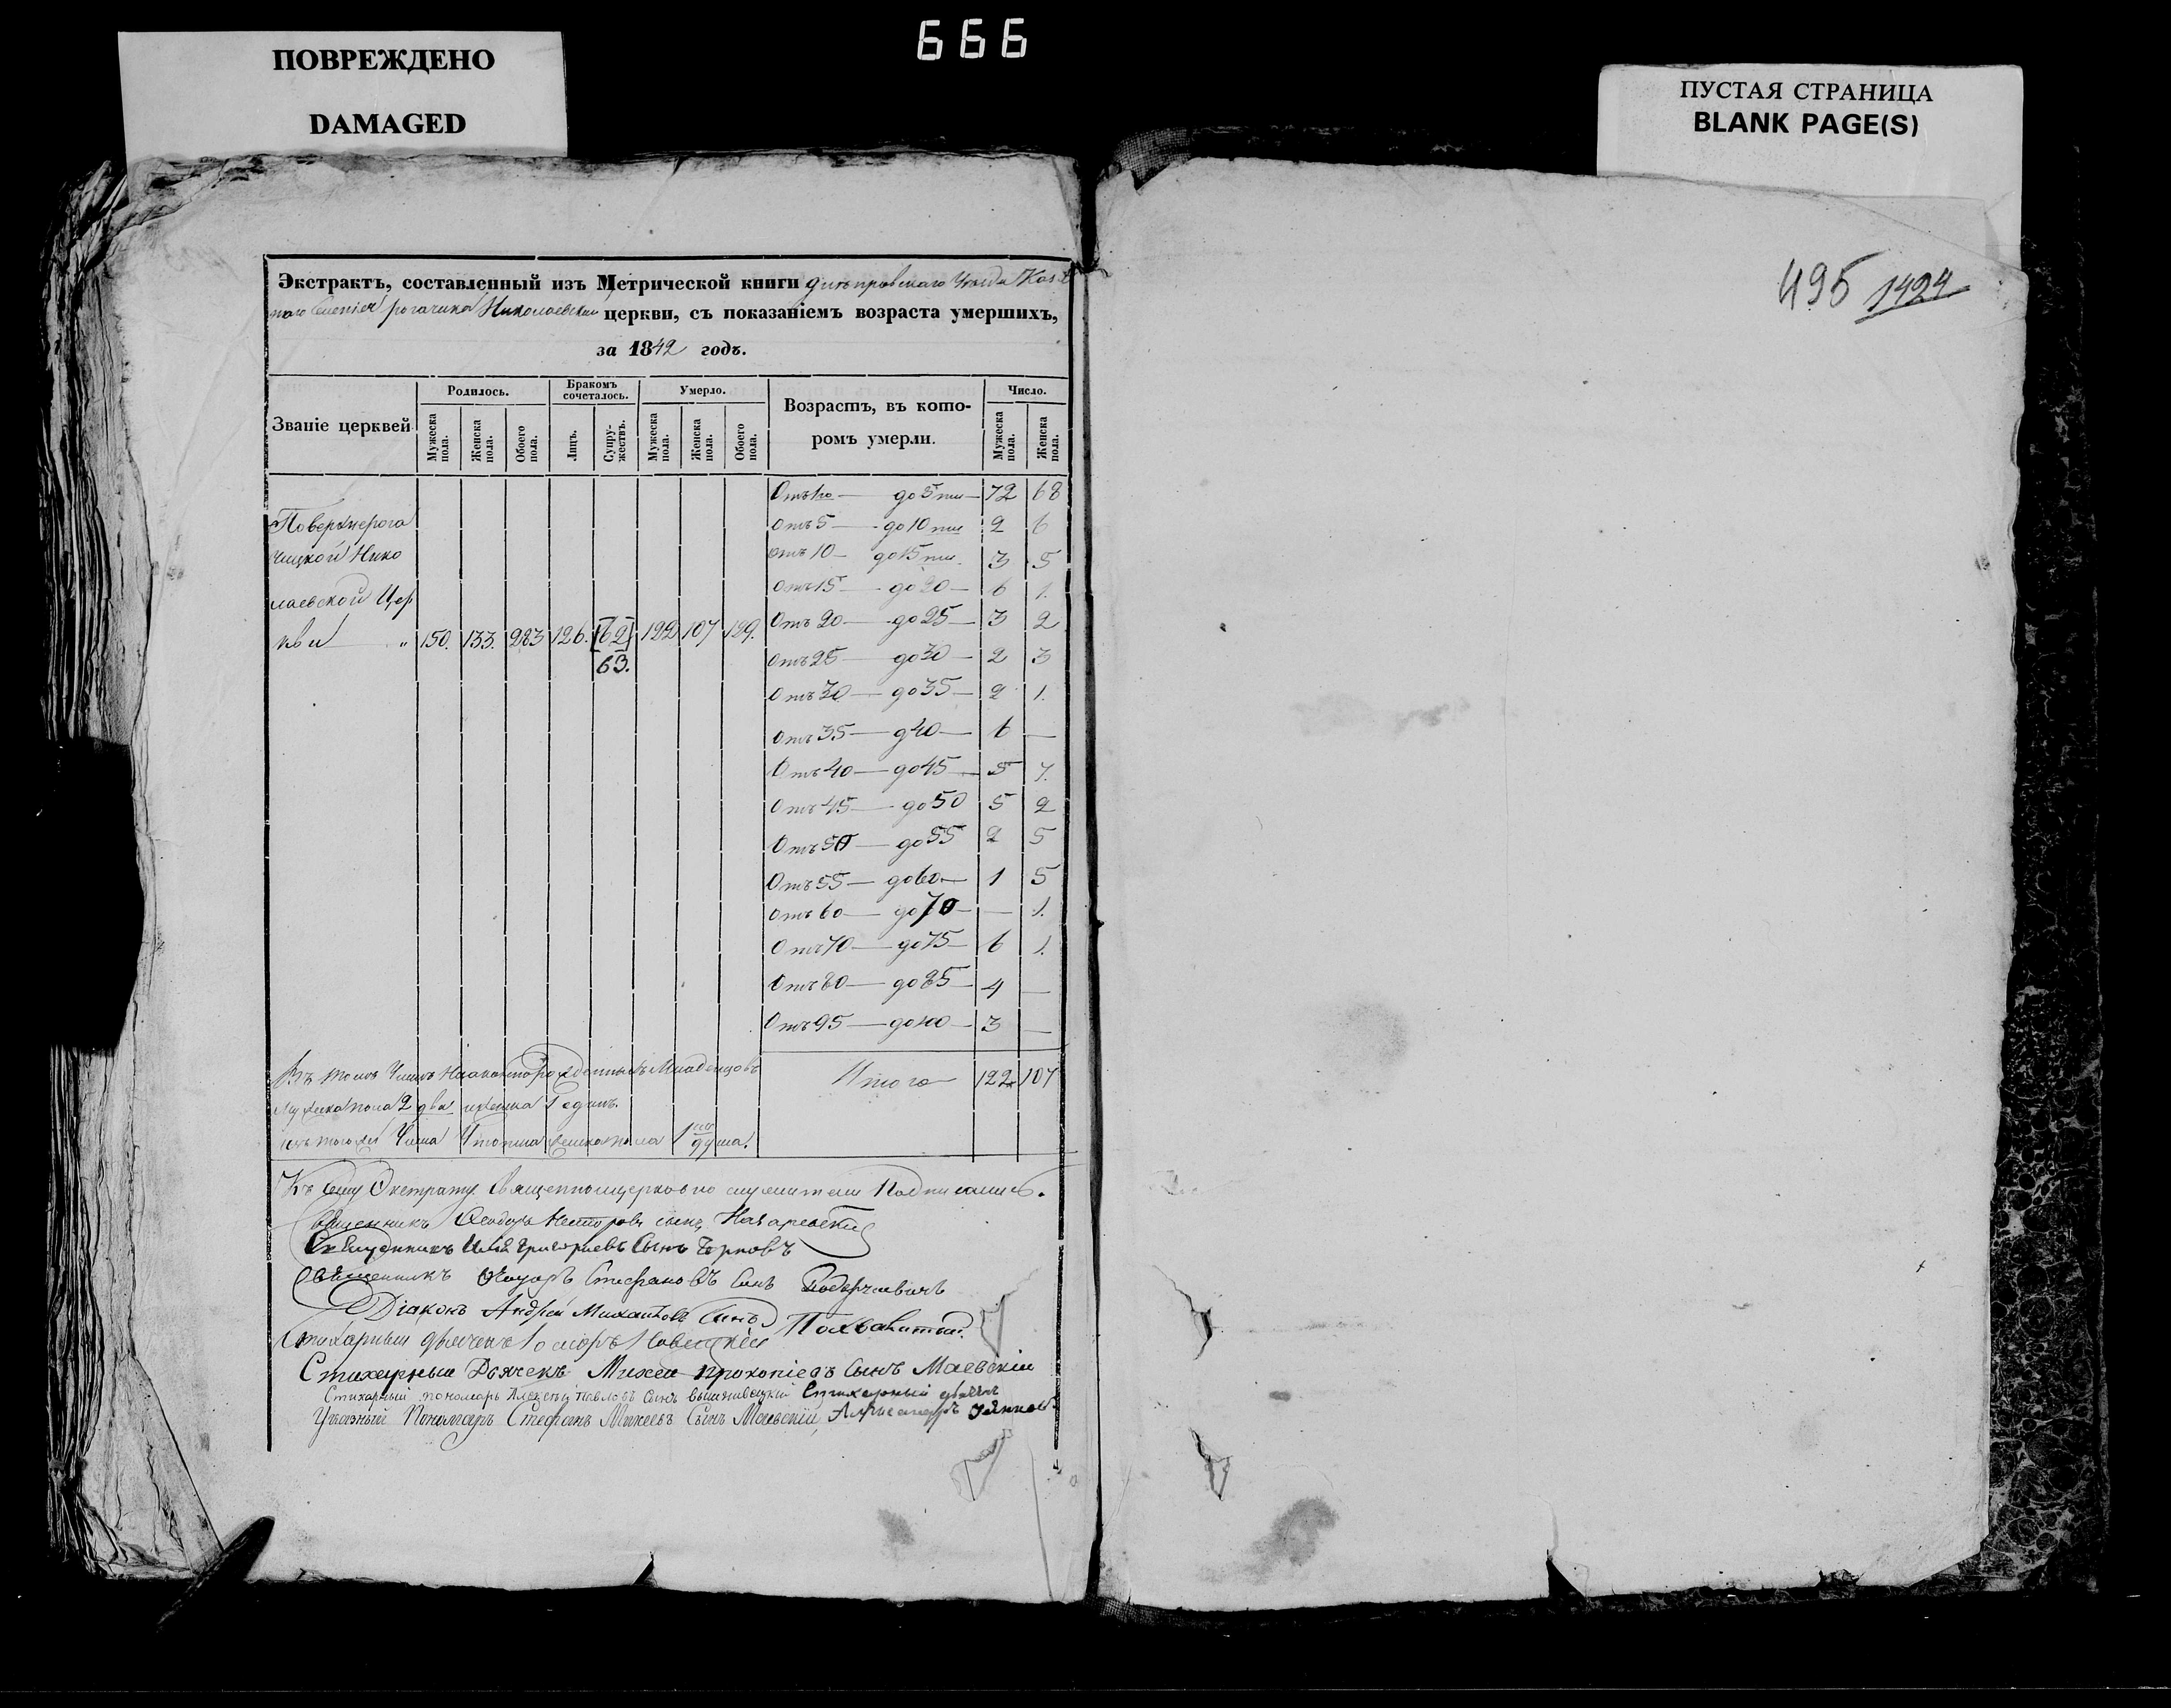 666
ПОВРЕЖДЕНО
DAMAGED
ПУСТАЯ СТРАНИЦА
BLANK PAGE(S)
495 1424
Экстрактъ, составленный изъ Метрической книги днѣпровскаго Уѣзда Казен
наго Селенія рогачика Николаевской церкви, съ показаніемъ возраста умершихъ,
за 1842 годъ.
Званіе церквей.
Родилось.
Бракомъ сочеталось.
Умерло.
Возрастъ, въ которомъ умерли.
Число.
Мужеска пола. Женска пола. Обоего пола. Лицъ. Супружествъ. Мужеска пола. Женска пола. Обоего пола. Мужеска пола. Женска пола.
Поверхнерога
чицкой Нико
лаевской Цер
кви " 150. 133. 283 126. [62] 122 107 129.
63.
Отъ го — до 5 ти — 72 68
Отъ 5 — до 10 ти 2 6
отъ 10 — до 15 ти. 3 5
Отъ 15 — до 20 — 6 1.
Отъ 20 — до 25 — 3 2
Отъ 25 — до 30 — 2 3
Отъ 30 — до 35 — 2 1.
Отъ 35 — д 40 — 6 —
Отъ 40 — до 45 — 5 7.
Отъ 45 — до 50 5 2
Отъ 50 — до 55 2 5
Отъ 55 — до 60 — 1 5
Отъ 60 — до 70 — — 1.
Отъ 70 — до 75 — 6 1.
Отъ 80 — до 85 — 4 —
Отъ 95 — до 100 — 3 —
Итого 122 107
Въ томъ Числѣ Младенцовъ
Мужеска пола 2 два женска 1 единъ.
Числа пола 1 душа.
Къ сему Экстракту Священноцерковно служители Подписались.
Священникъ Феодоръ Несторовъ сынъ
Священникъ Илія Григориевъ Сынъ
Священникъ Стефановъ Сынъ
Діаконъ Андрей Михаиловъ Сынъ Похвалитый.
Стихарный дьячекъ
Стихарный Дьячекъ Михей Прокопіевъ Сынъ Маевскій
Стихарный пономарь Алексѣй Павловъ Сынъ Стихарный дьячекъ
Указный Пономарь Стефанъ Михеевъ Сынъ Маевскій, Александръ